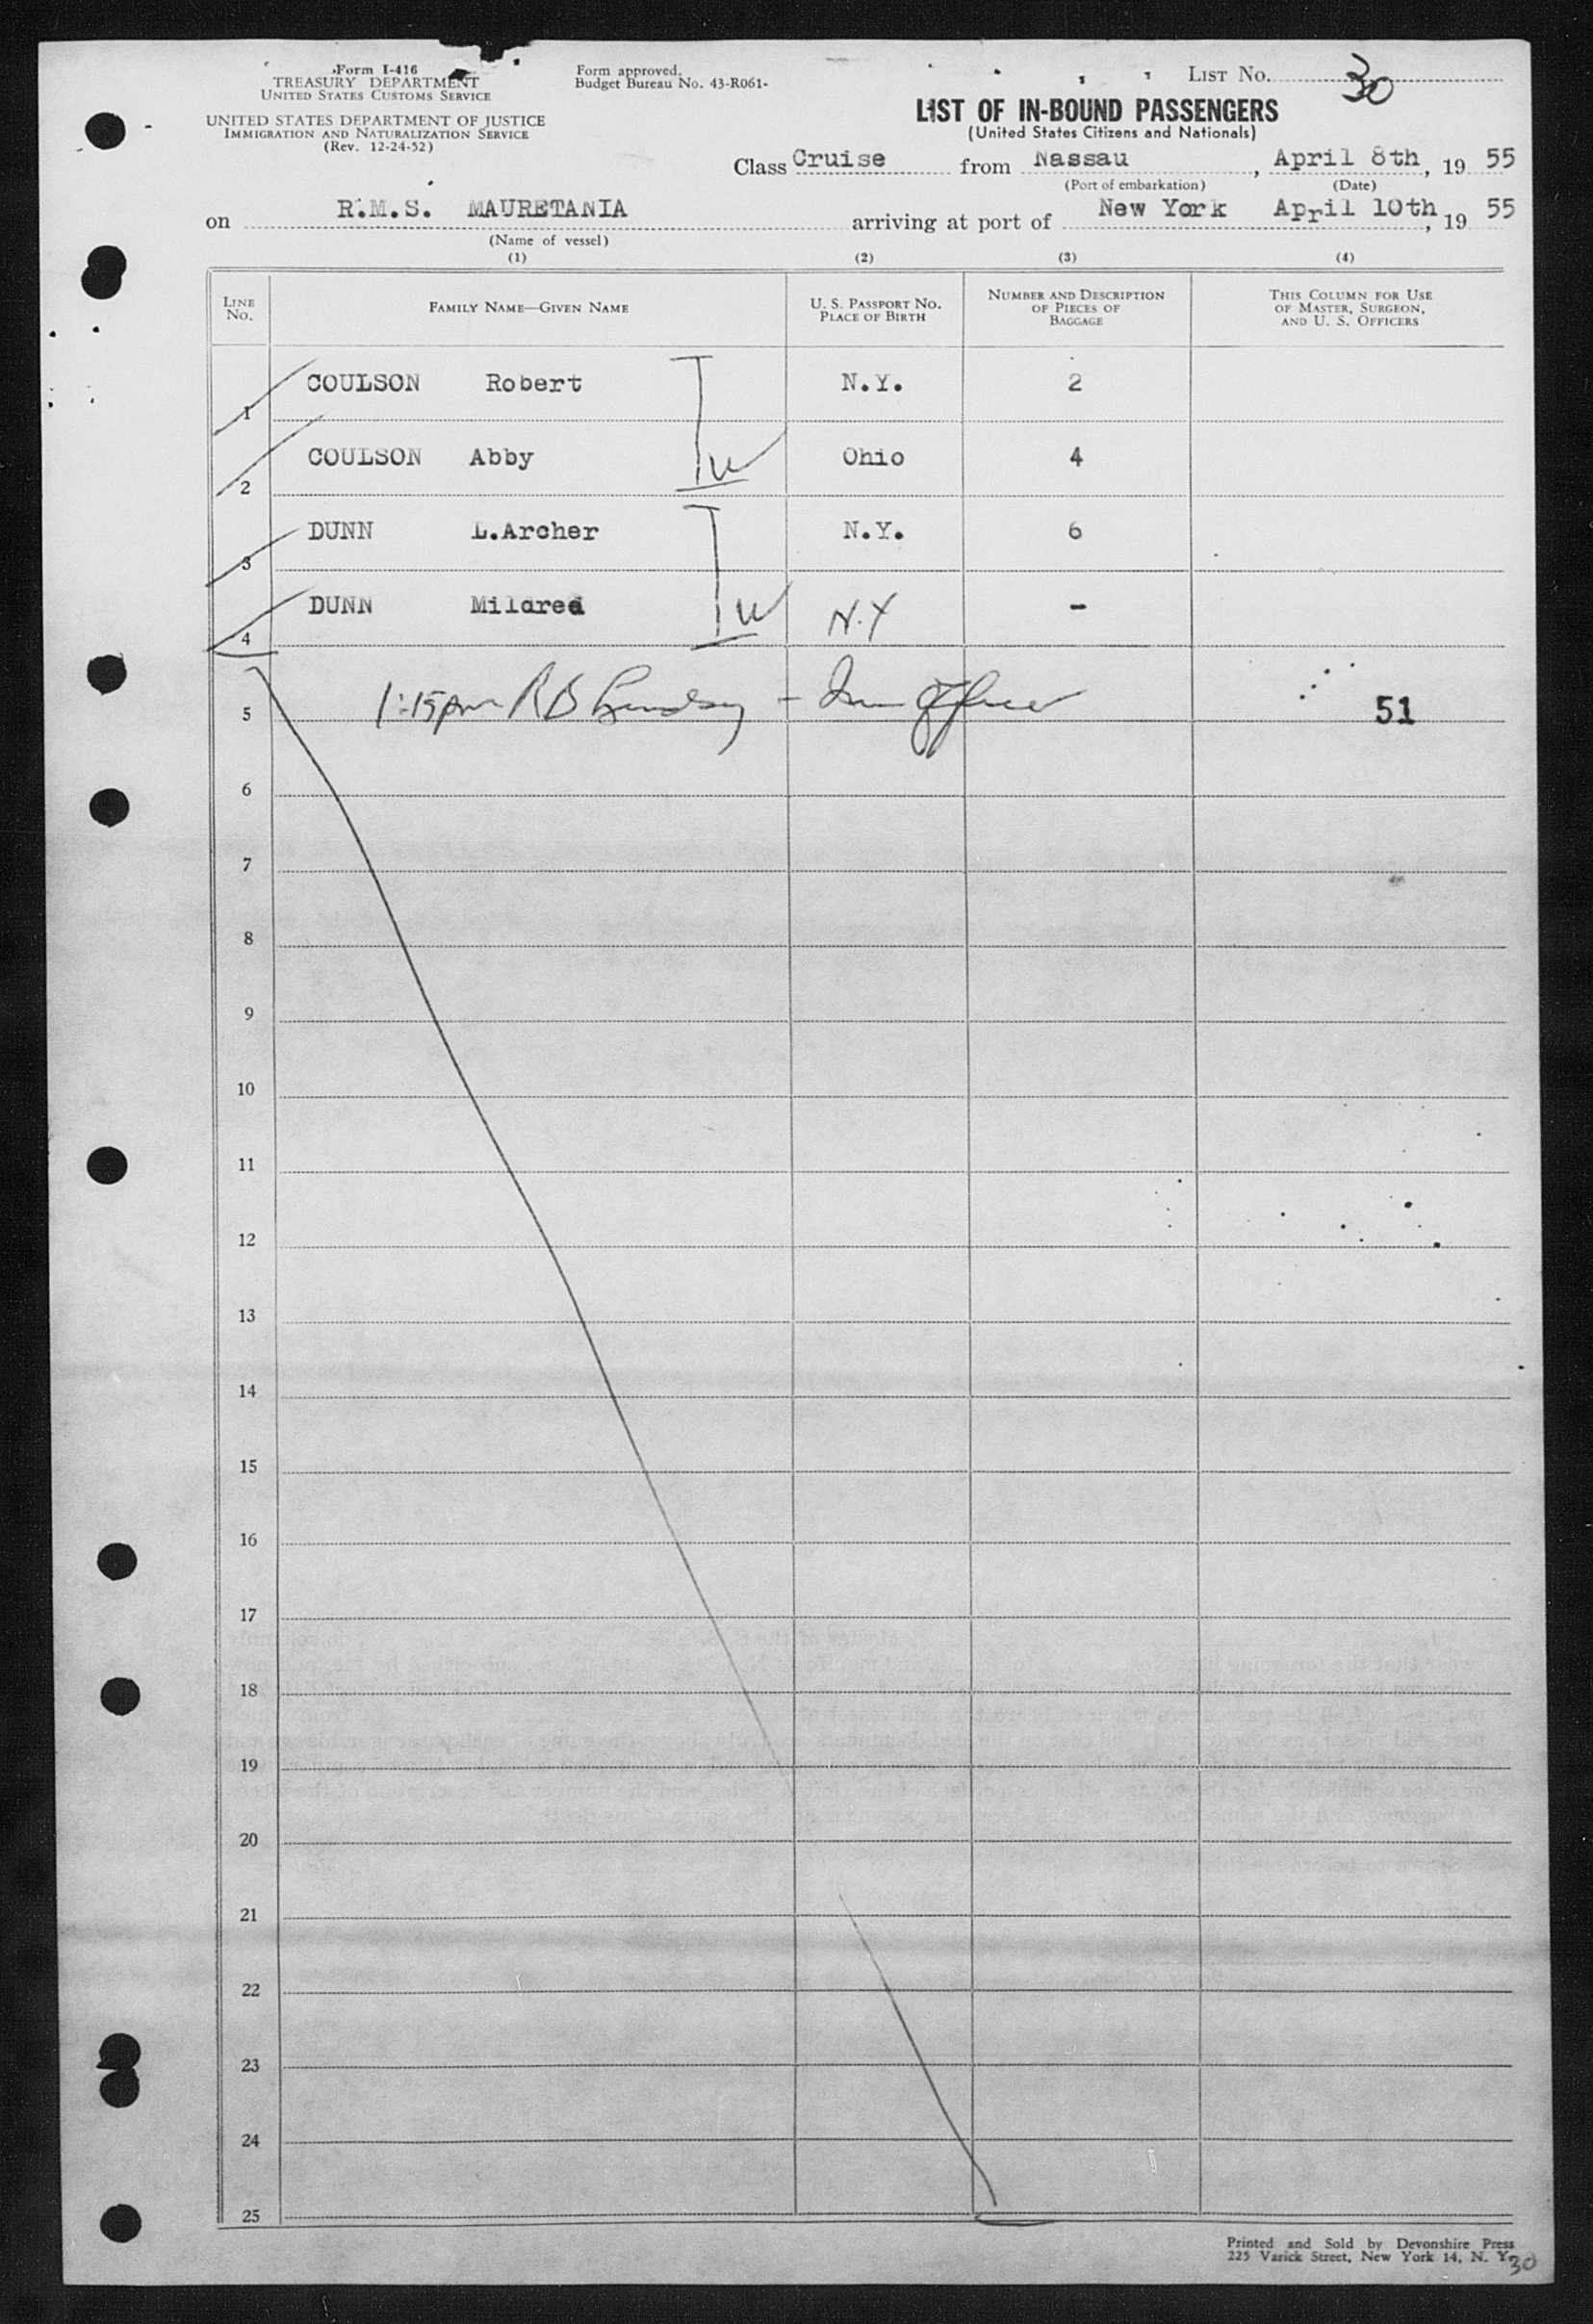 Form I-416
TREASURY DEPARTMENT
UNITED STATES CUSTOMS SERVICE
UNITED STATES DEPARTMENT OF JUSTICE
IMMIGRATION AND NATURALIZATION SERVICE
(Rev. 12-24-52)
Form approved.
Budget Bureau No. 43-R061-
LIST No. 30
LIST OF IN-BOUND PASSENGERS
(United States Citizens and Nationals)
Class Cruise from Nassau, April 8th, 19 55
(Port of embarkation) (Date)
on R.M.S. MAURETANIA arriving at port of New York April 10th, 19 55
(Name of vessel)
(1) (2) (3) (4)
LINE No. FAMILY NAME—GIVEN NAME U. S. PASSPORT No. PLACE OF BIRTH NUMBER AND DESCRIPTION OF PIECES OF BAGGAGE THIS COLUMN FOR USE OF MASTER, SURGEON, AND U. S. OFFICERS
1 COULSON Robert N.Y. 2
2 COULSON Abby Ohio 4
3 DUNN L.Archer N.Y. 6
4 DUNN Mildred N.Y -
5 1:15pm R B Lindsay - Imm Officer 51
6
7
8
9
10
11
12
13
14
15
16
17
18
19
20
21
22
23
24
25
Printed and Sold by Devonshire Press
225 Varick Street, New York 14, N. Y.
30